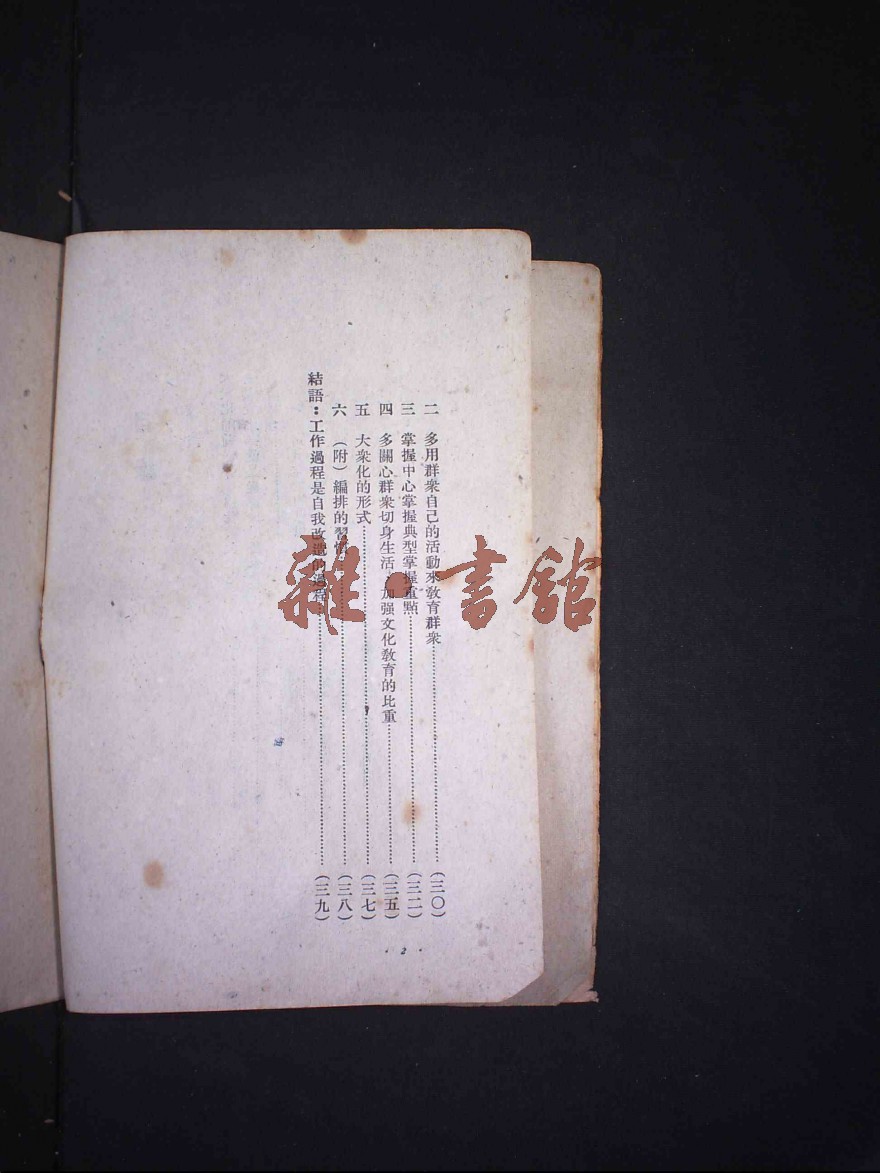 二　多用群衆自己的活動來教育群衆……（三〇）
三　掌握中心掌握典型掌握重點……（三二）
四　多關心群衆切身生活，加强文化教育的比重……（三五）
五　大衆化的形式……（三七）
六　（附）編排的習慣……（三八）
結語：工作過程是自我改造的過程……（三九）
· 2 ·
雜·書館